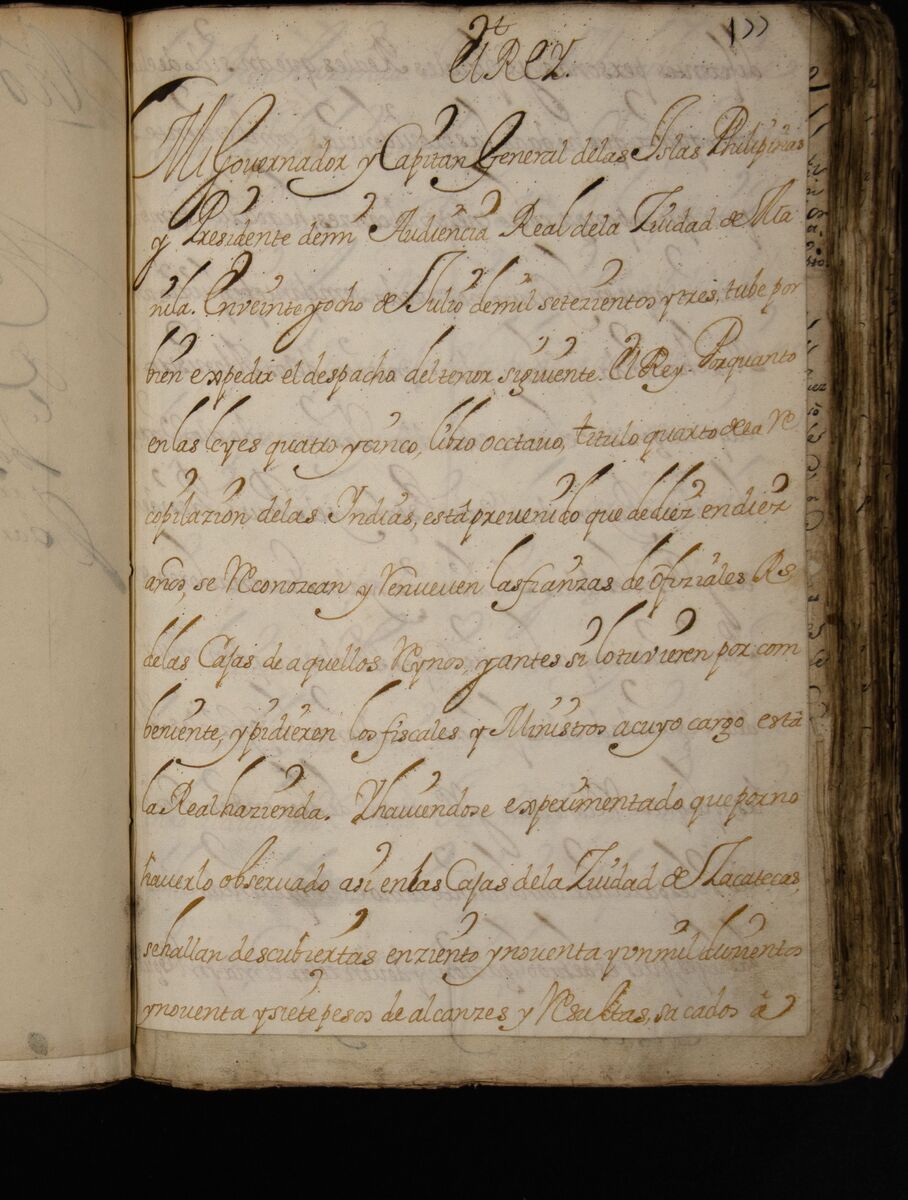 177
El REY.
Mi Governador y Capitan General delas Islas Philipinas
y Presidente demi Audiencia Real dela Ziudad de Ma
nila. Enveinte yocho de Julio demil seteZientos y tres, tube por
bien expedir el despacho deltenor siguiente. El Rey. Porquanto
en las leyes quatro y cinco, libro occtauo, titulo quarto de la Re
copilazion delas Yndias, está prevenido que de diez en diez
años, se Reconozcan y Renueven las fianzas de ofiziales Rs,
delas Cajas de aquellos Reynos, y antes si lo tuvieren por com
beniente, y pidieren los fiscales y Ministros acuyo cargo está
la Real hazienda. Y haviendose experimentado que por no
haverlo observado asi en las Cajas de la Ziudad de Zacatecas,
se hallan descubiertas en ziento y noventa y un mil duzientos
y noventa y siete pesos de alcanzes y Resultas, sacados á